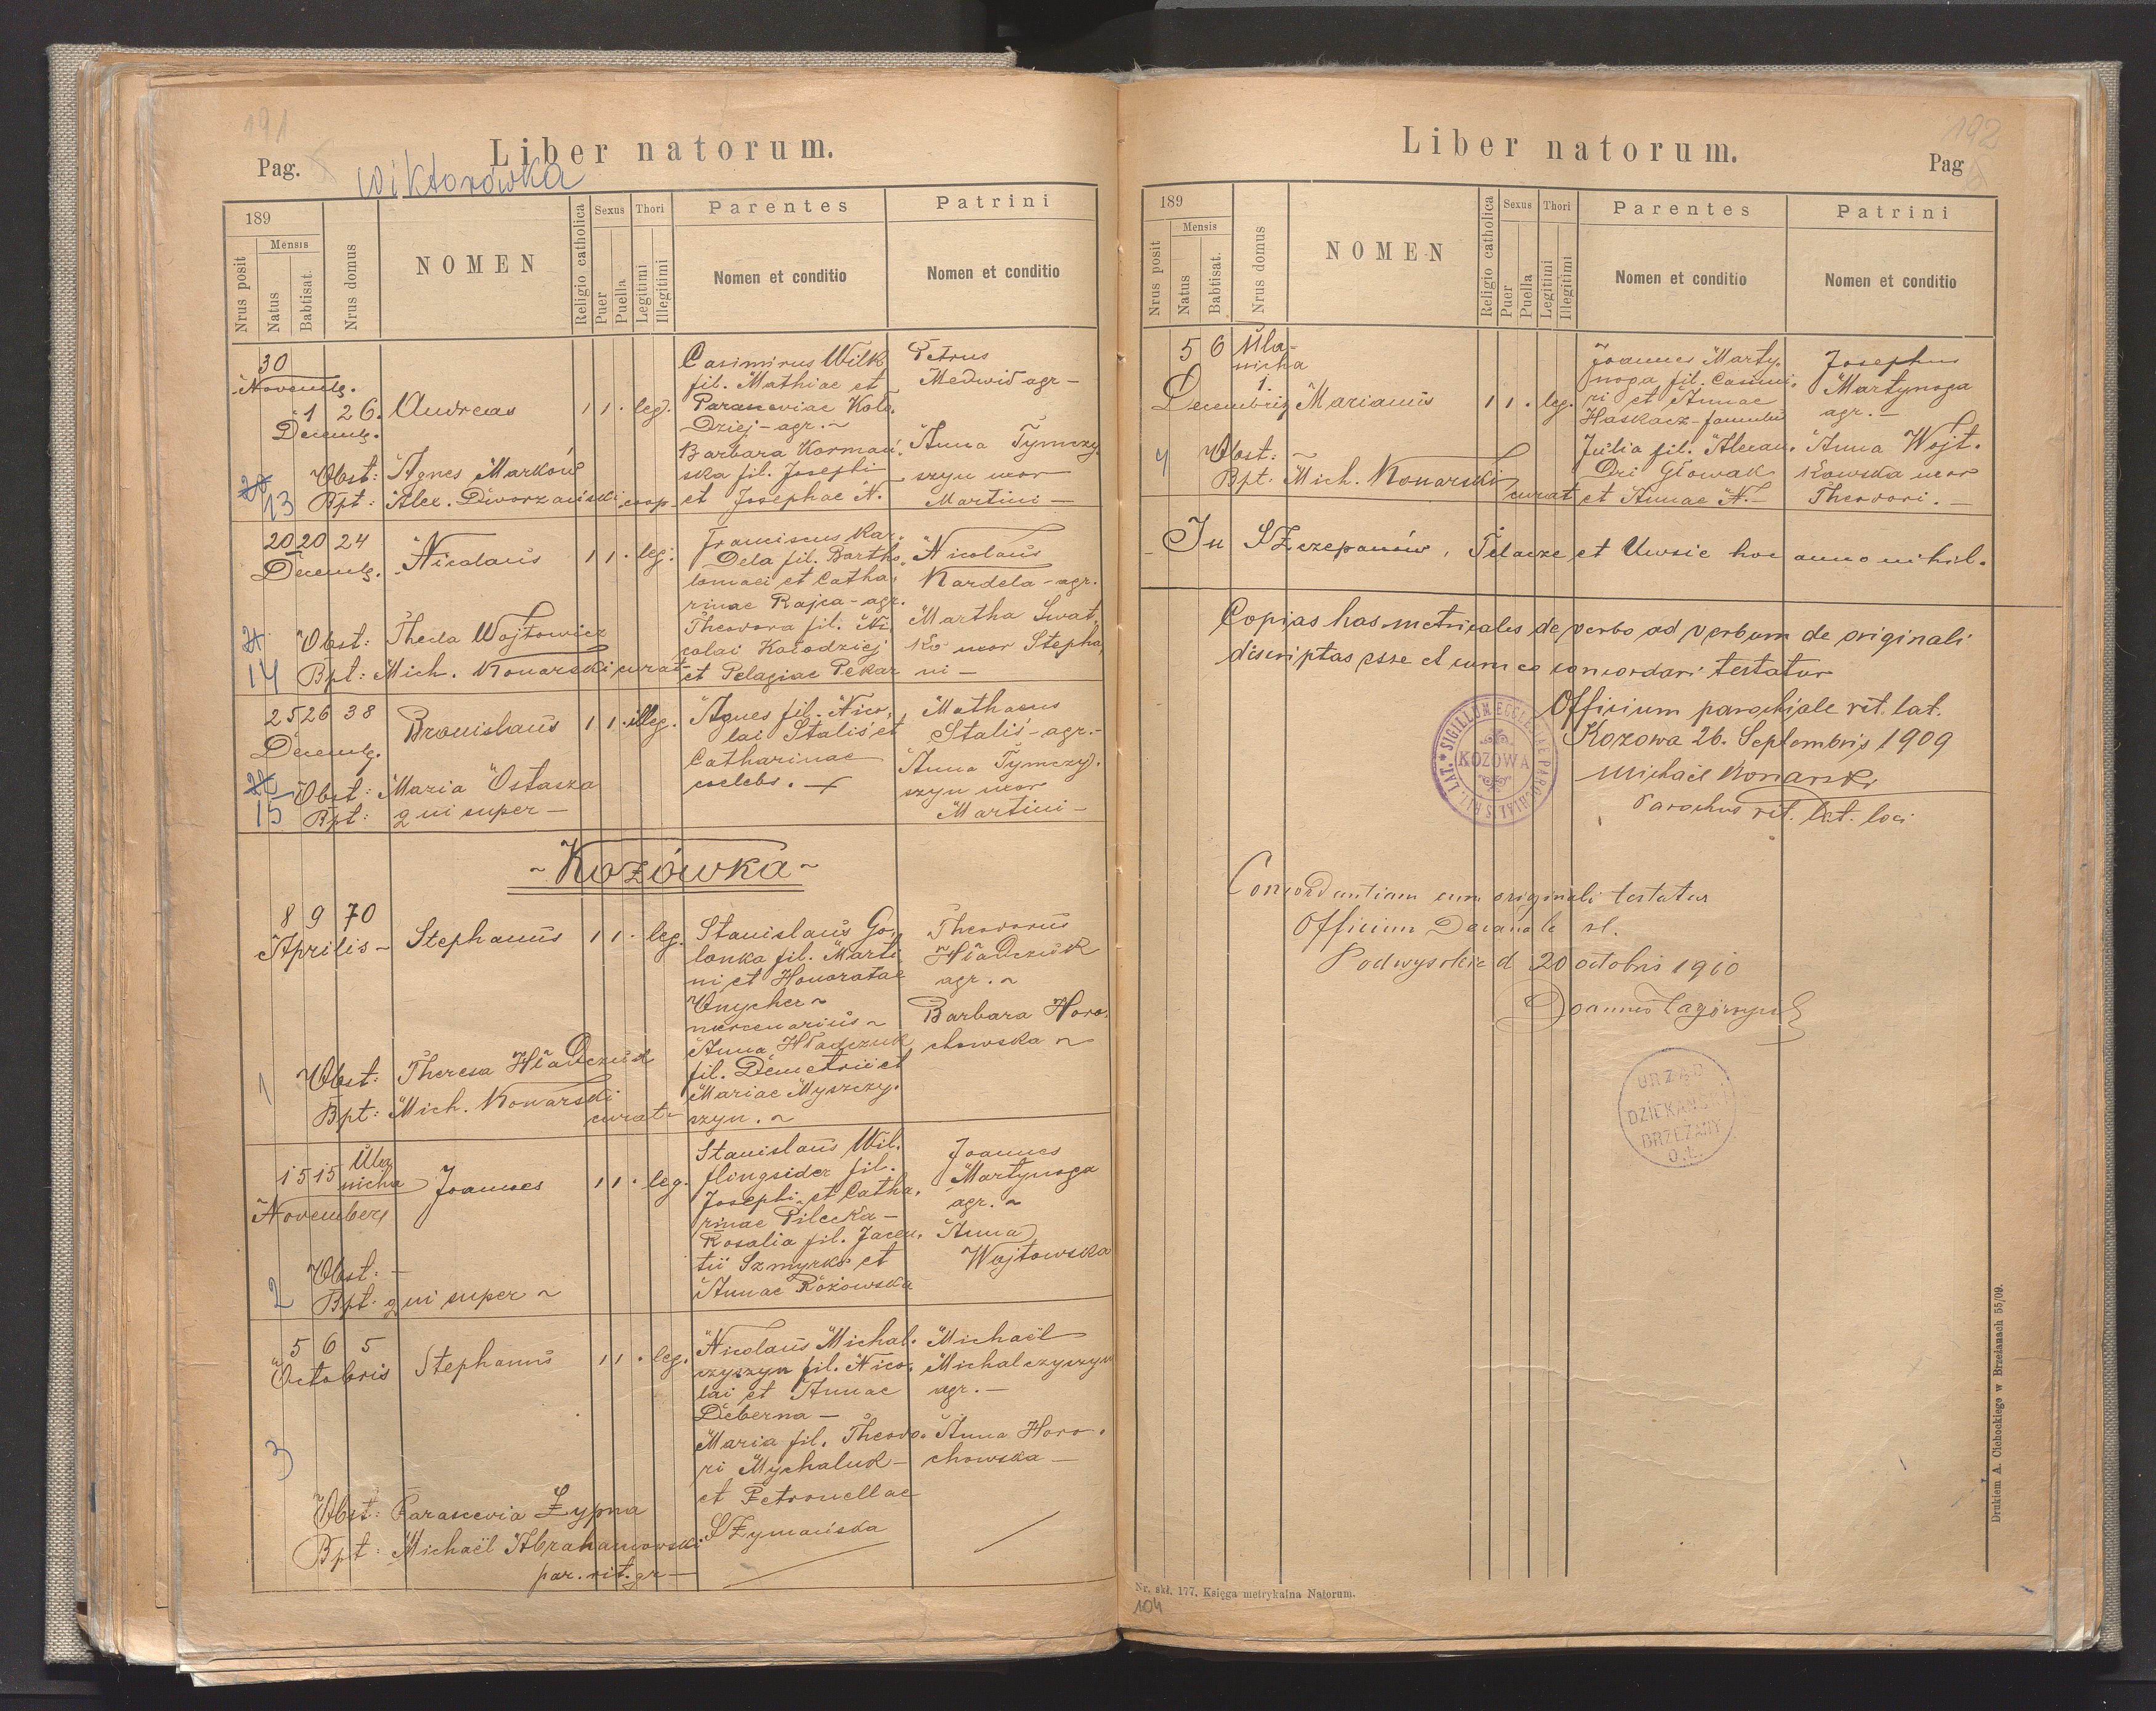 191
Liber natorum.
Pag.
Wiktorówka
189
Mensis
Nrus posit
Natus
Babtisat.
Nrus domus
NOMEN
Religio catholica
Sexus
Puer
Puella
Thori
Legitimi
Illegitimi
Parentes
Nomen et conditio
Patrini
Nomen et conditio
30
Novemb.
1 26. Andreas 1 1 . leg.
Decemb.
Casimirus Wilk
fil. Mathiae et
Parasceviae Koło-
dziej - agr. ~
Barbara Kormań-
ska fil. Josephi
et Josephae N.
Petrus
Medwid agr -
Anna Tymczy-
szyn uxor
Martini -
13
Obst: Agnes Marków
Bpt: Alex. Dworzański coop
20 20 24
Decemb.
Nicolaus 1 1 . leg.
Franciscus Kar-
dela fil. Bartho-
lomaei et Catha-
rinae Rajca - agr.
Theodora fil. Ni-
colai Kołodziej
et Pelagiae Pekar
Nicolaus
Kardela - agr.
Martha Swat-
ko uxor Stepha-
ni -
14
Obst: Thecla Wojtowicz
Bpt: Mich. Konarski curat -
25 26 38
Decemb.
Bronislaus 1 1 . illeg.
Agnes fil. Nico-
lai Staliś et
Catharinae
coelebs. -
Mathaeus
Staliś - agr. -
Anna Tymczy-
szyn uxor
Martini -
15
Obst: Maria Ostasza
Bpt: qui super -
~ Kozówka ~
8 9 70
Aprilis - Stephanus 1 1 . leg.
Stanislaus Go-
lonka fil. Marti-
ni et Honoratae
Unycher ~
mercenarius ~
Anna Hładczuk
fil. Demetrii et
Mariae Myszczy-
szyn. ~
Theodorus
Hładczuk
agr. ~
Barbara Horo-
chowska ~
1
Obst: Theresa Hładczuk
Bpt: Mich. Konarski
curat -
15 15 Ula-
nicha
Novembers
Joannes 1 1 . leg.
Stanislaus Wil-
flingsider fil.
Josephi et Catha-
rinae Pilecka -
Rosalia fil. Jacen-
tii Szmyrko et
Annae Rożowska
Joannes
Martynoga
agr. ~
Anna
Wojtowska
2
Obst: -
Bpt: qui super ~
5 6 5
Octobris
Stephanus 1 1 . leg.
Nicolaus Michal-
czyszyn fil. Nico-
lai et Annae
Deberna -
Maria fil. Theodo-
ri Mychaluk -
et Petronellae
Szymańska
Michaël
Michalczyszyn
agr. -
Anna Horo-
chowska -
3
Obst: Parascevia Zypna
Bpt: Michaël Abrahamowski
par. rit. gr -
192
Liber natorum.
Pag
189
Mensis
Nrus posit
Natus
Babtisat.
Nrus domus
NOMEN
Religio catholica
Sexus
Puer
Puella
Thori
Legitimi
Illegitimi
Parentes
Nomen et conditio
Patrini
Nomen et conditio
5 6 Ula-
nicha
1.
Decembris Marianus 1 1 . leg.
Joannes Marty-
noga fil. Casimi-
ri et Annae
Haskacz - famulus
Julia fil. Alexan-
dri Głowak
et Annae N. -
Josephus
Martynoga
agr. -
Anna Wojt-
kowska uxor
Theodori. -
4
Obst: ~
Bpt: Mich. Konarski
curat
- In Szczepanów, Telacze et Uwsie hoc anno nihil.
Copias has metricales de verbo ad verbum de originali
discriptas esse et cum eo concordari testatur
Officium parochiale rit. lat.
Kozowa 26. Septembris 1909
Michaël Konarski
Parochus rit. lat. loci
SIGILLUM ECCLESIAE PAROCHIALIS RIT. LAT.
KOZOWA
Concordantiam cum originali testatur
Officium Decanale r.l.
Podwysokie d 20 octobris 1910
URZĄD
DZIEKAŃSKI
BRZEŻANY
O.Ł.
Nr. skł. 177. Księga metrykalna Natorum.
104
Drukiem A. Cichockiego w Brzeżanach 55/09.